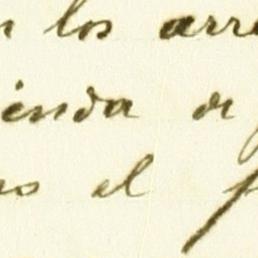 los arr
ienda de
os el